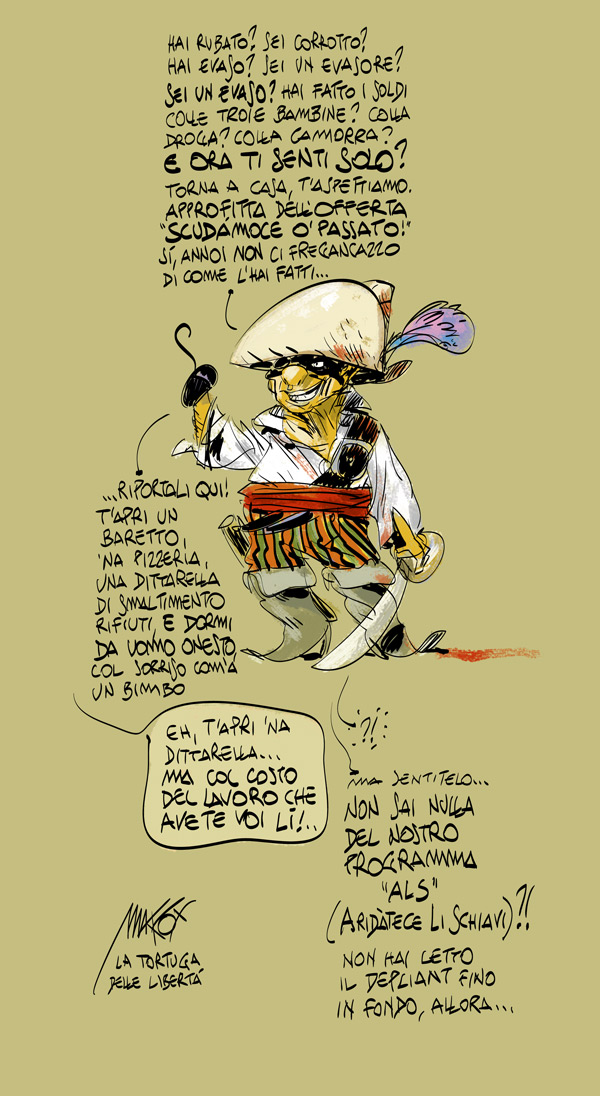 HAI RUBATO? SEI CORROTTO?
HAI EVASO? SEI UN EVASORE?
SEI UN EVASO? HAI FATTO I SOLDI
COLLE TROIE BAMBINE? COLLA
DROGA? COLLA CAMORRA?
E ORA TI SENTI SOLO?
TORNA A CASA, T'ASPETTIAMO.
APPROFITTA DELL'OFFERTA
"SCUDÁMOCE O' PASSATO!"
SÍ, ANNOI NON CI FREGANCAZZO
DI COME L'HAI FATTI...
...RIPORTALI QUI!
T'APRI UN
BARETTO,
'NA PIZZERIA,
UNA DITTARELLA
DI SMALTIMENTO
RIFIUTI, E DORMI
DA UOMO ONESTO,
COL SORRISO COM'A
UN BIMBO
EH, T'APRI 'NA
DITTARELLA...
MA COL COSTO
DEL LAVORO CHE
AVETE VOI LÌ!..
?!
MA SENTITELO...
NON SAI NULLA
DEL NOSTRO
PROGRAMMMA
"ALS"
(ARIDÀTECE LI SCHIAVI)?!
NON HAI LETTO
IL DEPLIANT FINO
IN FONDO, ALLORA...
MAKKOX
LA TORTUGA
DELLE LIBERTÁ